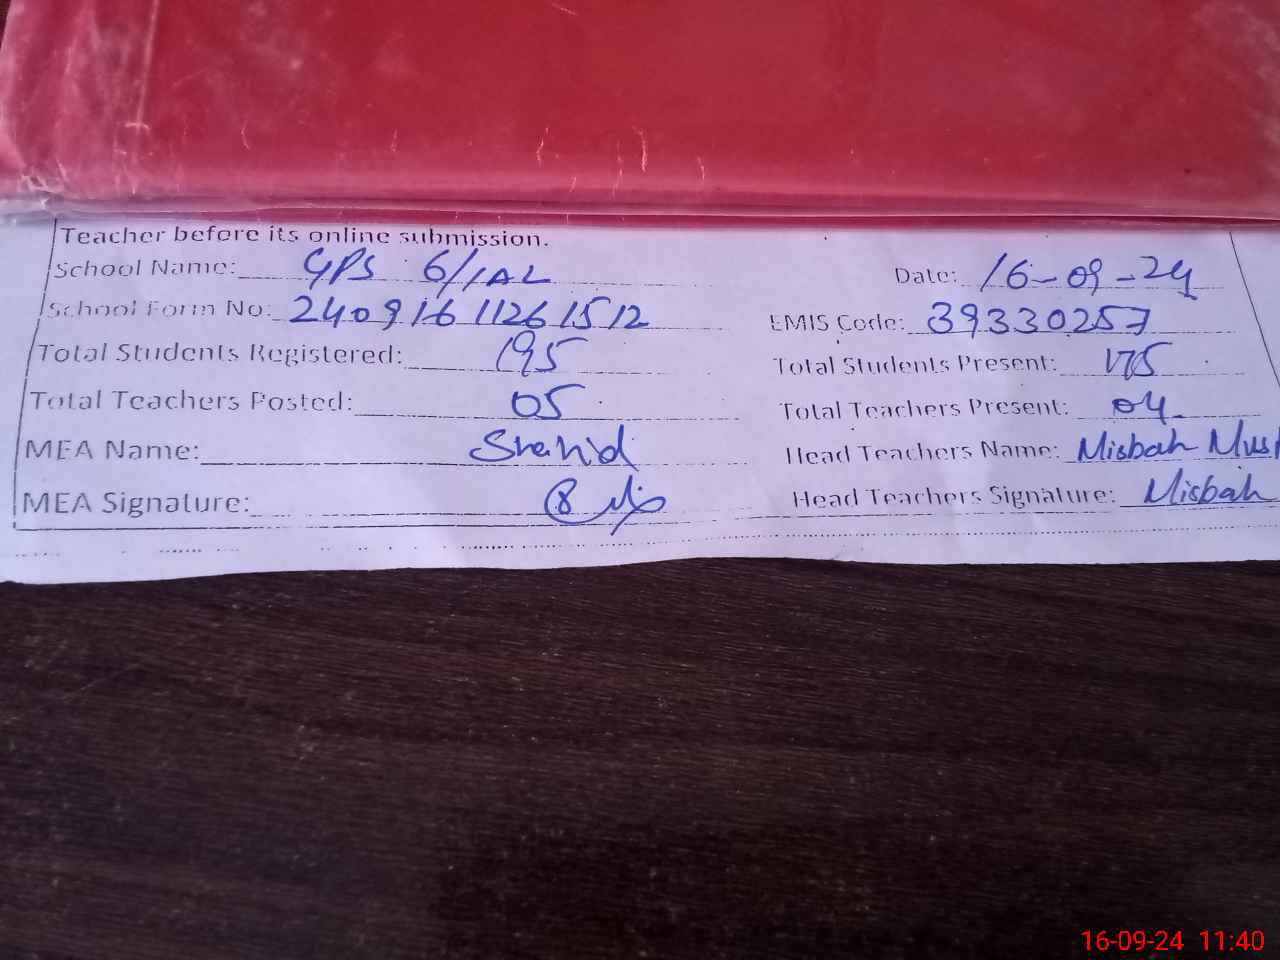 Teacher before its online submission.
School Name: GPS 6/1AL Date: 16-09-24
School Form No: 24091611261512 EMIS Code: 39330257
Total Students Registered: 195 Total Students Present: 175
Total Teachers Posted: 05 Total Teachers Present: 04
MEA Name: Shahid Head Teachers Name: Misbah
MEA Signature: Head Teachers Signature: Misbah
16-09-24 11:40